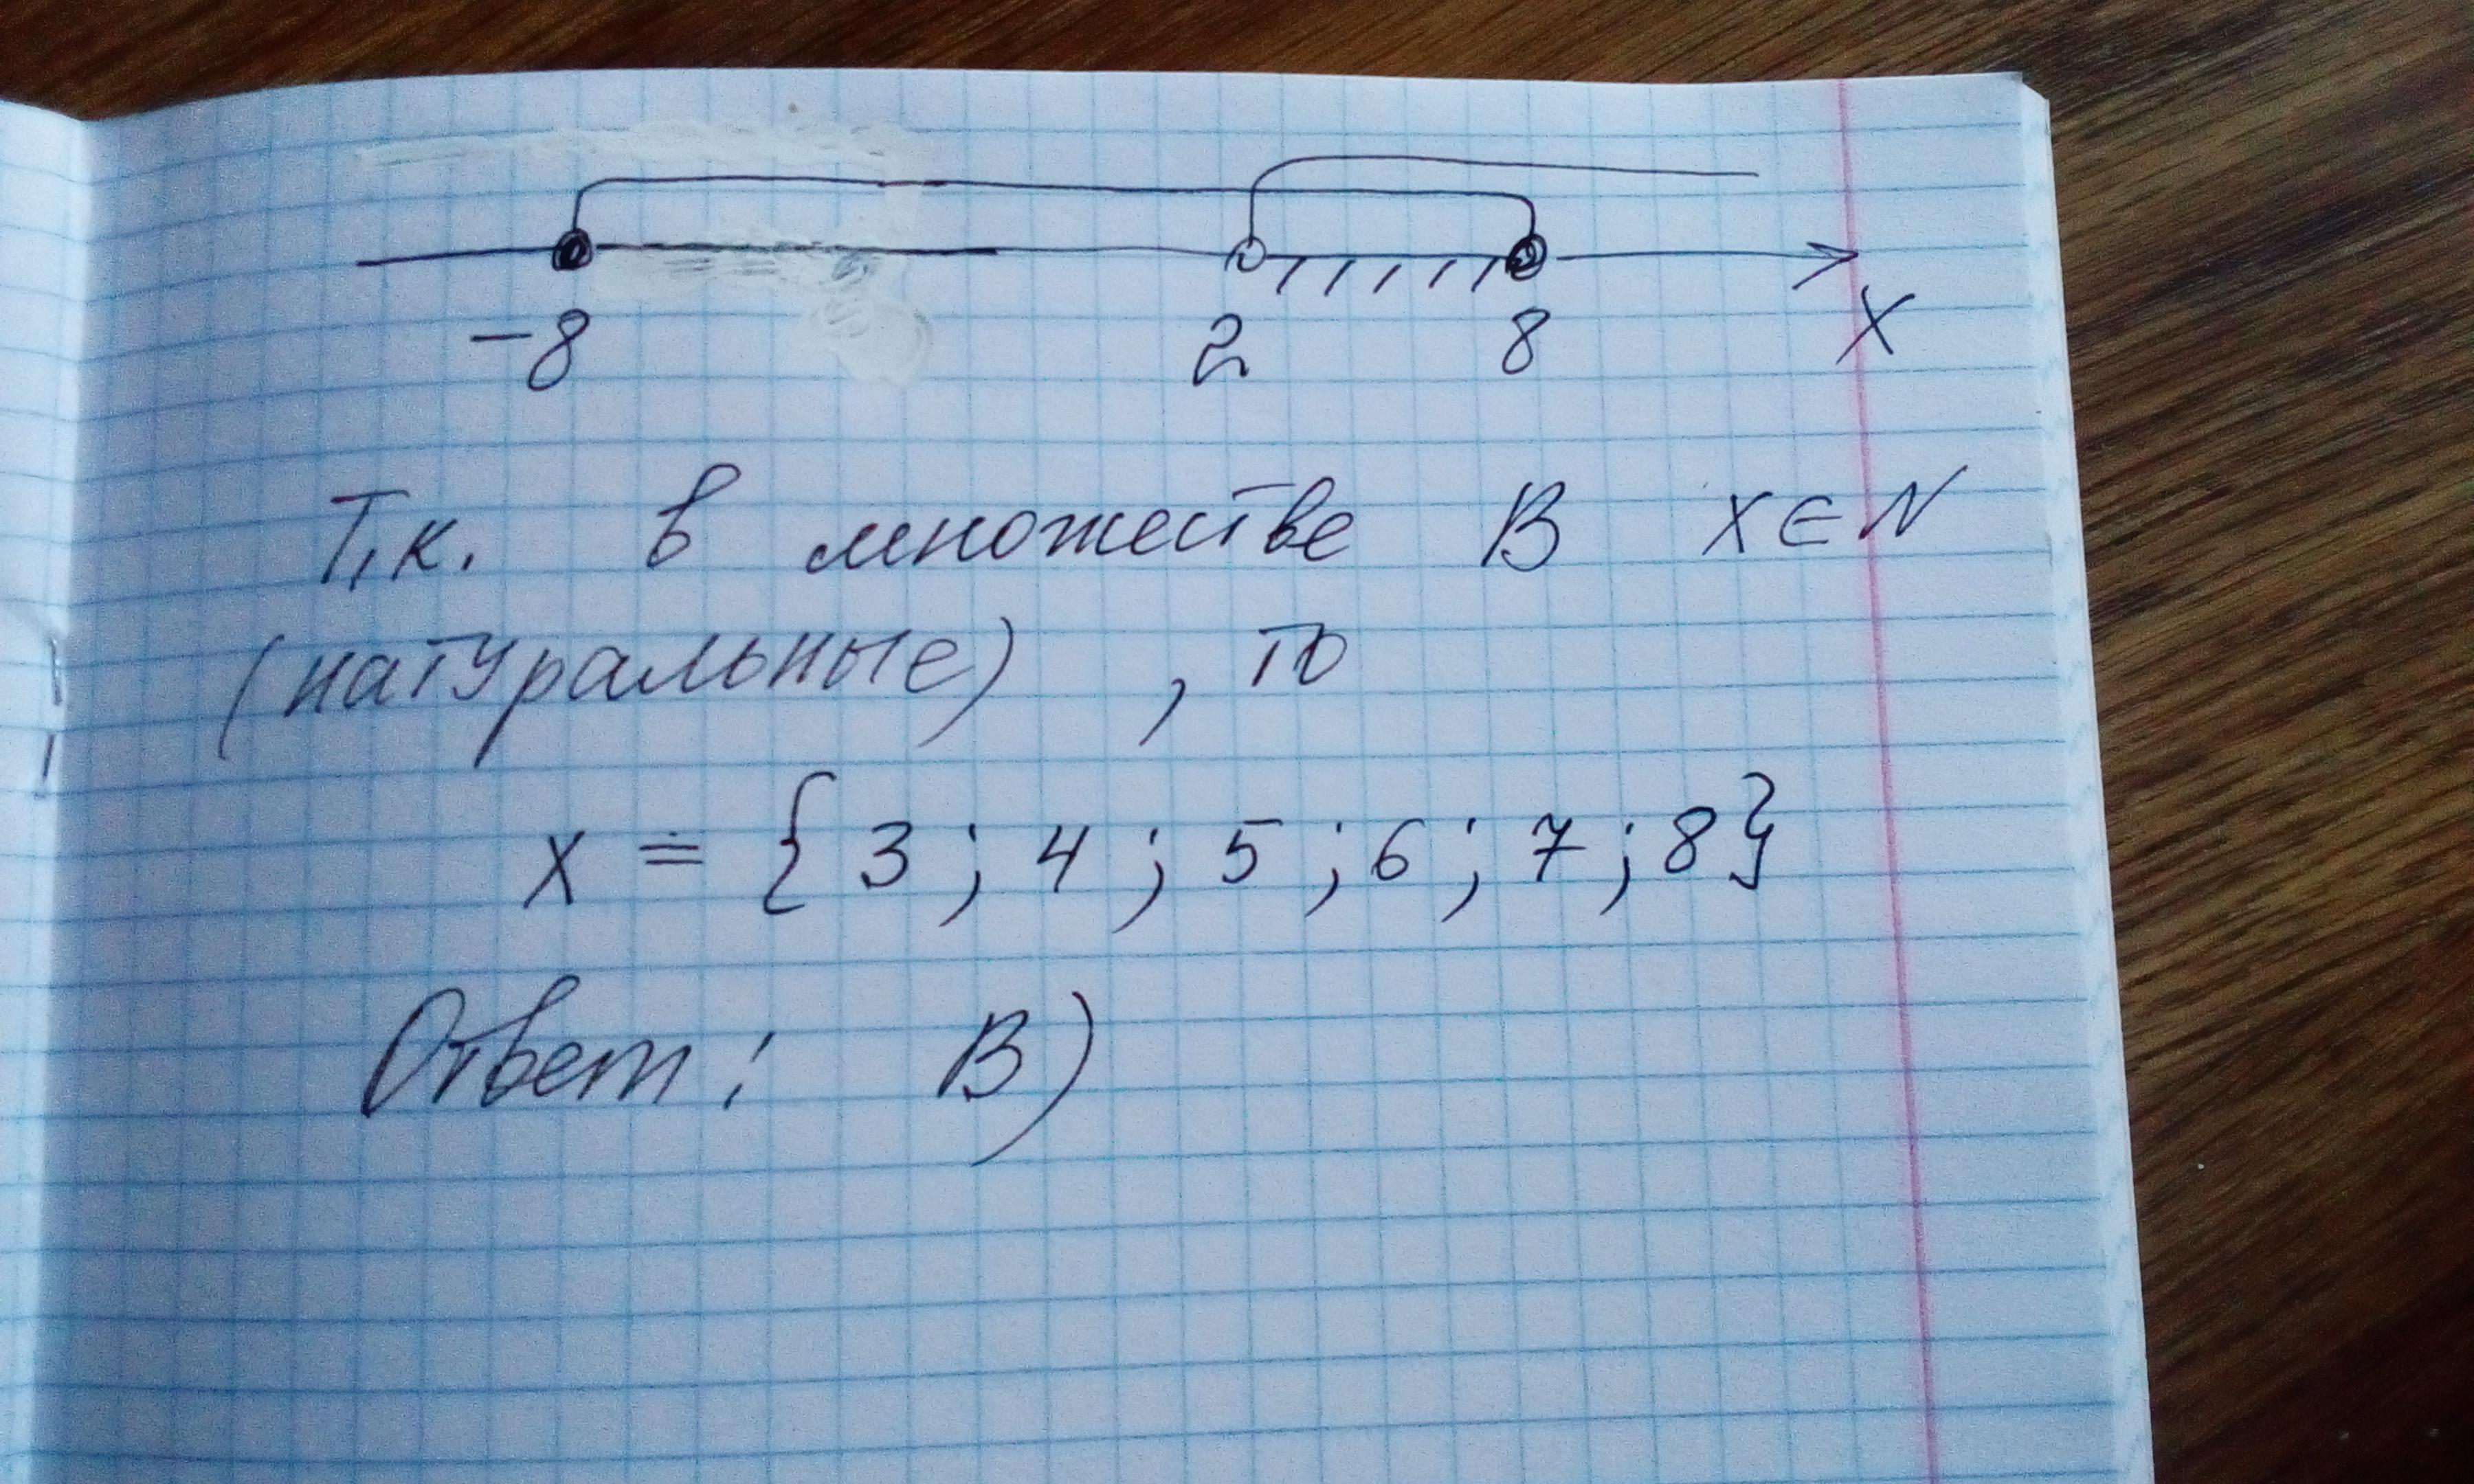 -8 2 8 X
Т.к. в множестве B X∈N
(натуральные) , то
x = {3 ; 4 ; 5 ; 6 ; 7 ; 8}
Ответ: В)